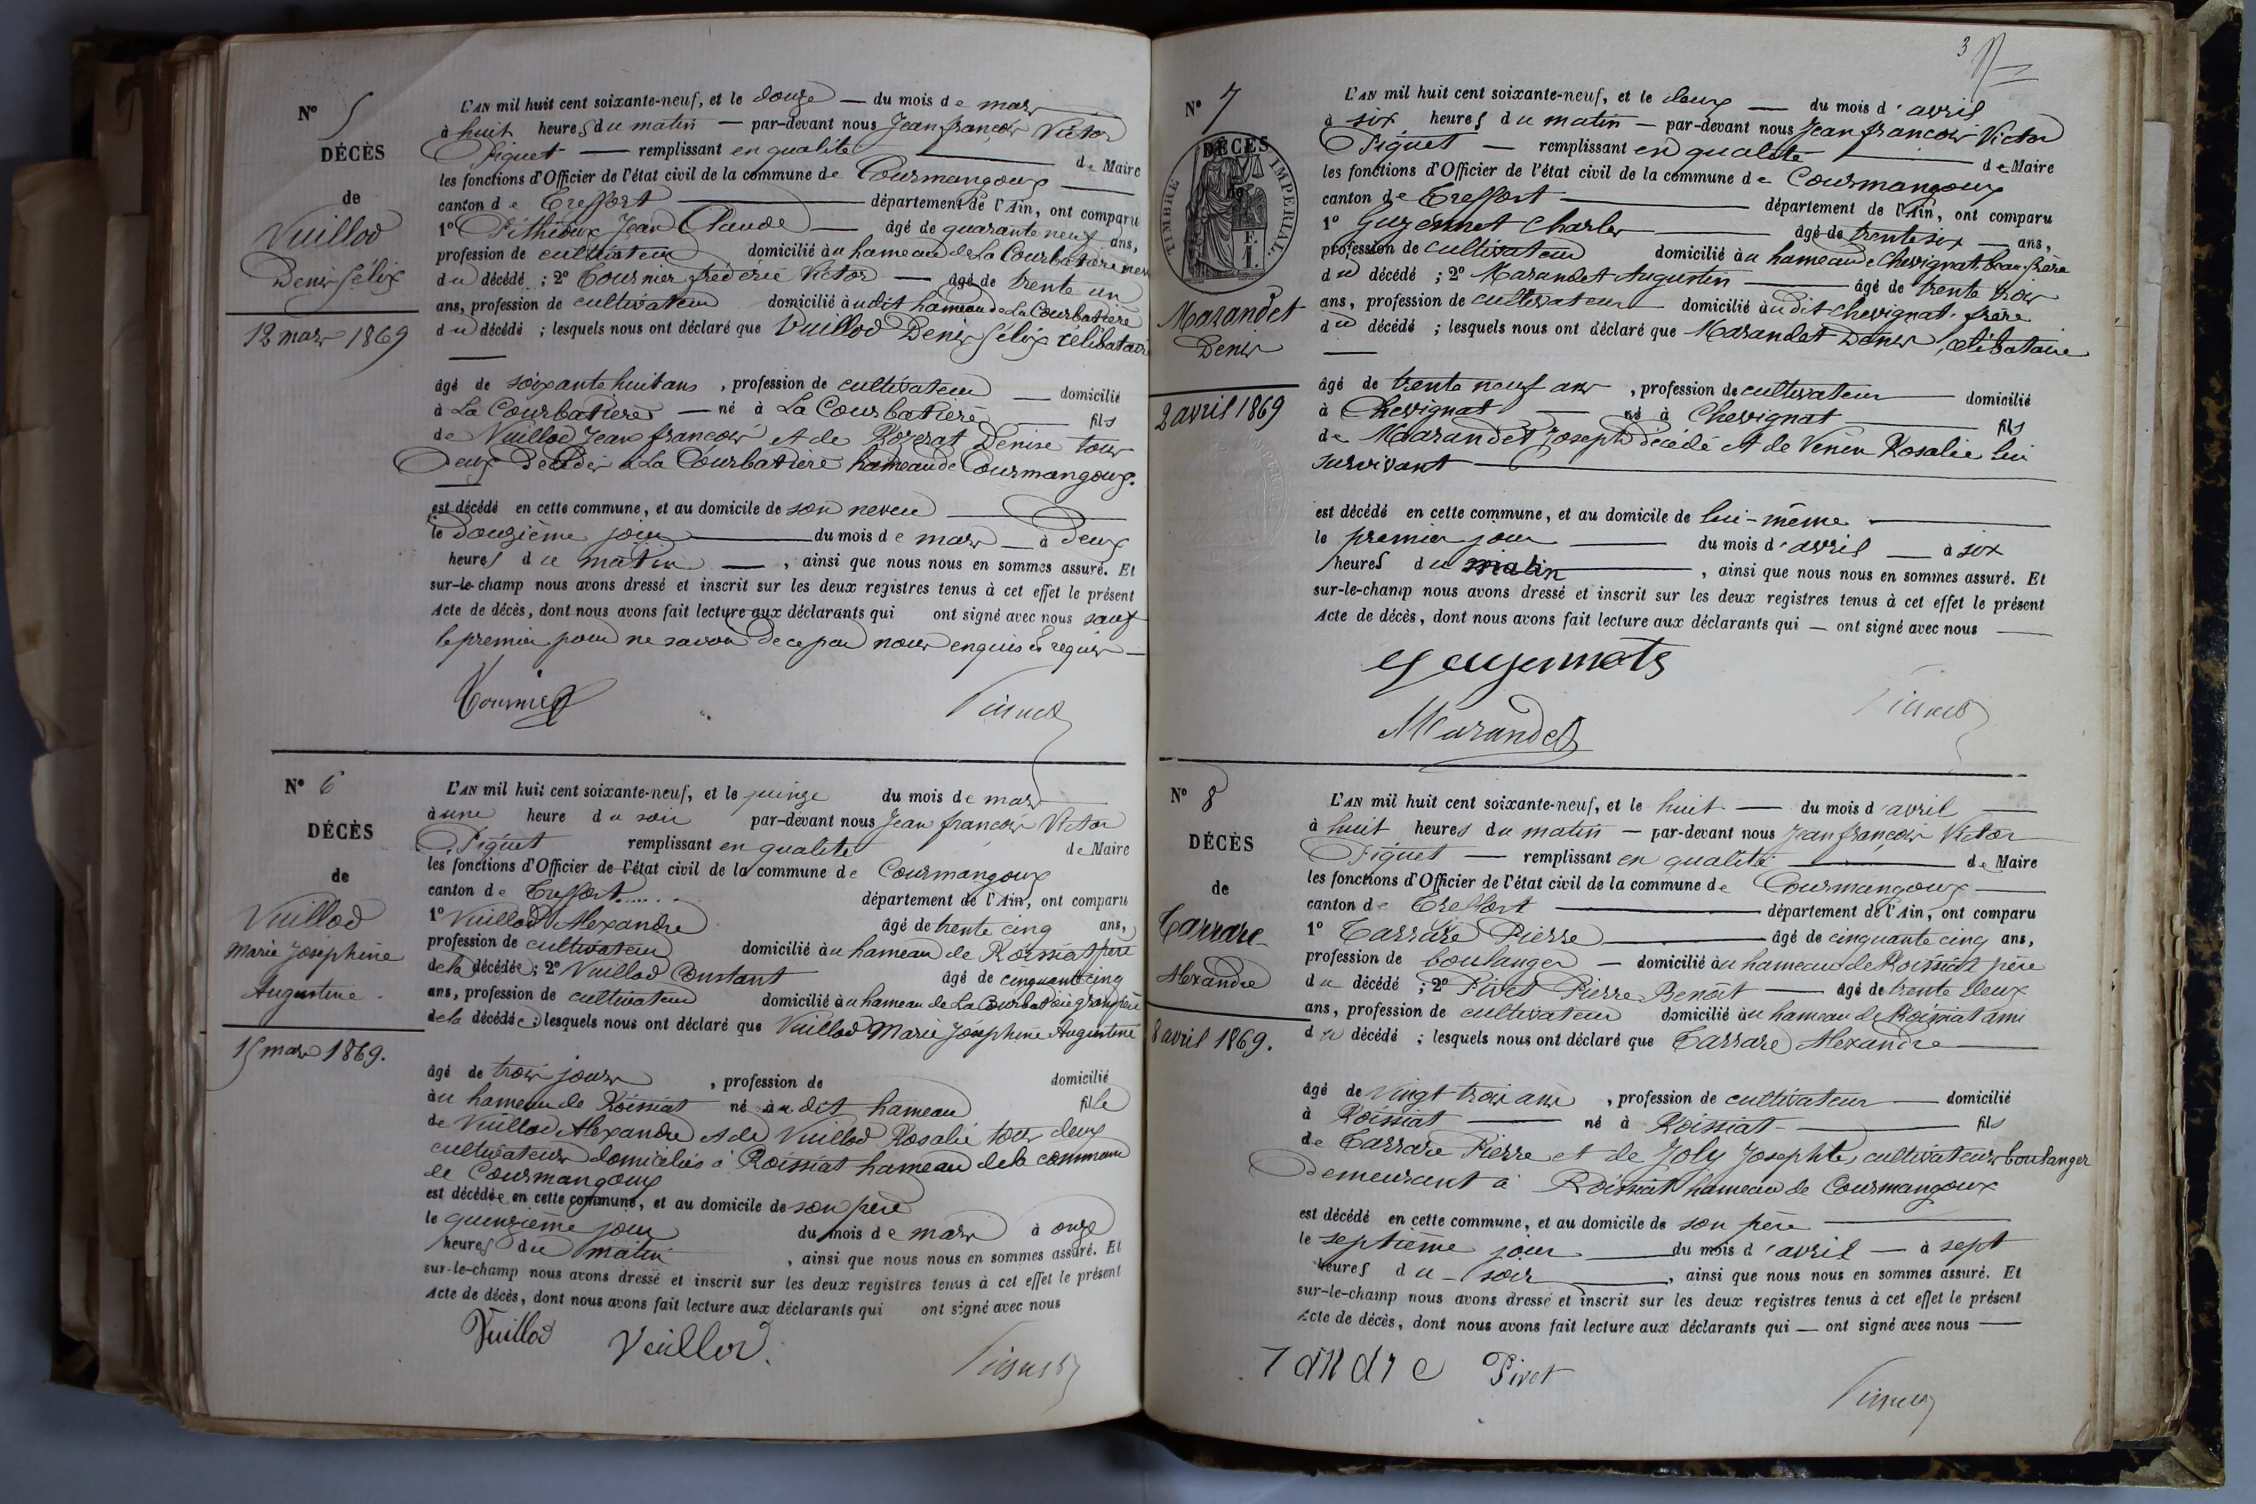 N° 5
DÉCÈS
de
Vuillod
Denis félix
12 mars 1869
L'AN mil huit cent soixante-neuf, et le douze — du mois de mars
à huit heures du matin — par-devant nous Jean françois Victor
Piguet — remplissant en qualité — de Maire
les fonctions d'Officier de l'état civil de la commune de Courmangoux —
canton de Treffort — département de l'Ain, ont comparu
1° Jean Claude — âgé de quarante neuf ans,
profession de cultivateur domicilié au hameau de La Courbatière neveu
du décédé ; 2° Tournier fréderic Victor — âgé de trente un
ans, profession de cultivateur domicilié audit hameau de La Courbatière
du décédé ; lesquels nous ont déclaré que Vuillod Denis félix célibataire
—
âgé de soixante huit ans , profession de cultivateur — domicilié
à La Courbatière — né à La Courbatière — fils
de Vuillod Jean françois et de Denise tous
Deux Décédés à La Courbatière hameau de Courmangoux.
—
est décédé en cette commune, et au domicile de son neveu —
le Douzième jour — du mois de mars — à Deux
heures du matin — , ainsi que nous nous en sommes assuré. Et
sur-le-champ nous avons dressé et inscrit sur les deux registres tenus à cet effet le présent
Acte de décès, dont nous avons fait lecture aux déclarants qui ont signé avec nous sauf
le premier pour ne savoir De ce par nous enquis et requis —
Tournier
N° 6
DÉCÈS
de
Vuillod
Marie Joséphine
Augustine.
15 mars 1869.
L'AN mil huit cent soixante-neuf, et le quinze du mois de mars
à une heure du soir par-devant nous Jean françois Victor
Piguet remplissant en qualité de Maire
les fonctions d'Officier de l'état civil de la commune de Courmangoux
canton de Treffort...... département de l'Ain, ont comparu
1° Vuillod Alexandre âgé de trente cinq ans,
profession de cultivateur domicilié au hameau de Roissiat père
de la décédée ; 2° Vuillod Constant âgé de cinquante cinq
ans, profession de cultivateur domicilié au hameau de La Courbatière grand père
de la décédée ; lesquels nous ont déclaré que Vuillod Marie Joséphine Augustine
âgé de trois jours , profession de domicilié
au hameau de Roissiat né au dit hameau fille
de Vuillod Alexandre et de Vuillod Rosalie tous deux
cultivateurs domiciliés à Roissiat hameau de la commune
de Courmangoux
est décédée en cette commune, et au domicile de son père
le quinzième jour du mois de mars à onze
heures du matin , ainsi que nous nous en sommes assuré. Et
sur-le-champ nous avons dressé et inscrit sur les deux registres tenus à cet effet le présent
Acte de décès, dont nous avons fait lecture aux déclarants qui ont signé avec nous
Vuillod Vuillod.
3
N° 7
DÉCÈS
de
TIMBRE IMPERIAL.
Marandet
Denis
2 avril 1869
L'AN mil huit cent soixante-neuf, et le deux — du mois d'avril
à six heures du matin — par-devant nous Jean françois Victor
Piguet — remplissant en qualité — de Maire
les fonctions d'Officier de l'état civil de la commune de Courmangoux
canton de Treffort — département de l'Ain, ont comparu
1° Guyennet Charles — âgé de trente six — ans,
profession de cultivateur domicilié au hameau de Chevignat beau frère
du décédé ; 2° Marandet Augustin — âgé de trente trois
ans, profession de cultivateur — domicilié audit Chevignat. frère
du décédé ; lesquels nous ont déclaré que Marandet Denis, célibataire
—
âgé de trente neuf ans , profession de cultivateur — domicilié
à Chevignat — né à Chevignat — fils
de Marandet Joseph décédé et de Rosalie lui
survivant —
est décédé en cette commune, et au domicile de lui-même —
le premier jour — du mois d'avril — à six
heures du matin — , ainsi que nous nous en sommes assuré. Et
sur-le-champ nous avons dressé et inscrit sur les deux registres tenus à cet effet le présent
Acte de décès, dont nous avons fait lecture aux déclarants qui — ont signé avec nous —
Marandet
N° 8
DÉCÈS
de
Tarrare
Alexandre
8 avril 1869.
L'AN mil huit cent soixante-neuf, et le huit — du mois d'avril —
à huit heures du matin — par-devant nous Jean françois Victor
Piguet — remplissant en qualité — de Maire
les fonctions d'Officier de l'état civil de la commune de Courmangoux —
canton de Treffort — département de l'Ain, ont comparu
1° Tarrare Pierre — âgé de cinquante cinq ans,
profession de boulanger — domicilié au hameau de Roissiat père
du décédé ; 2° Pivet Pierre Benoît — âgé de trente deux
ans, profession de cultivateur domicilié au hameau de Roissiat ami
du décédé ; lesquels nous ont déclaré que Tarrare Alexandre —
âgé de vingt trois ans , profession de cultivateur — domicilié
à Roissiat — né à Roissiat — fils
de Tarrare Pierre et de Joly Josephte, cultivateurs boulanger
Demeurant à Roissiat hameau de Courmangoux
est décédé en cette commune, et au domicile de son père —
le septième jour — du mois d'avril — à sept
heures du soir — , ainsi que nous nous en sommes assuré. Et
sur-le-champ nous avons dressé et inscrit sur les deux registres tenus à cet effet le présent
Acte de décès, dont nous avons fait lecture aux déclarants qui — ont signé avec nous —
Pivet